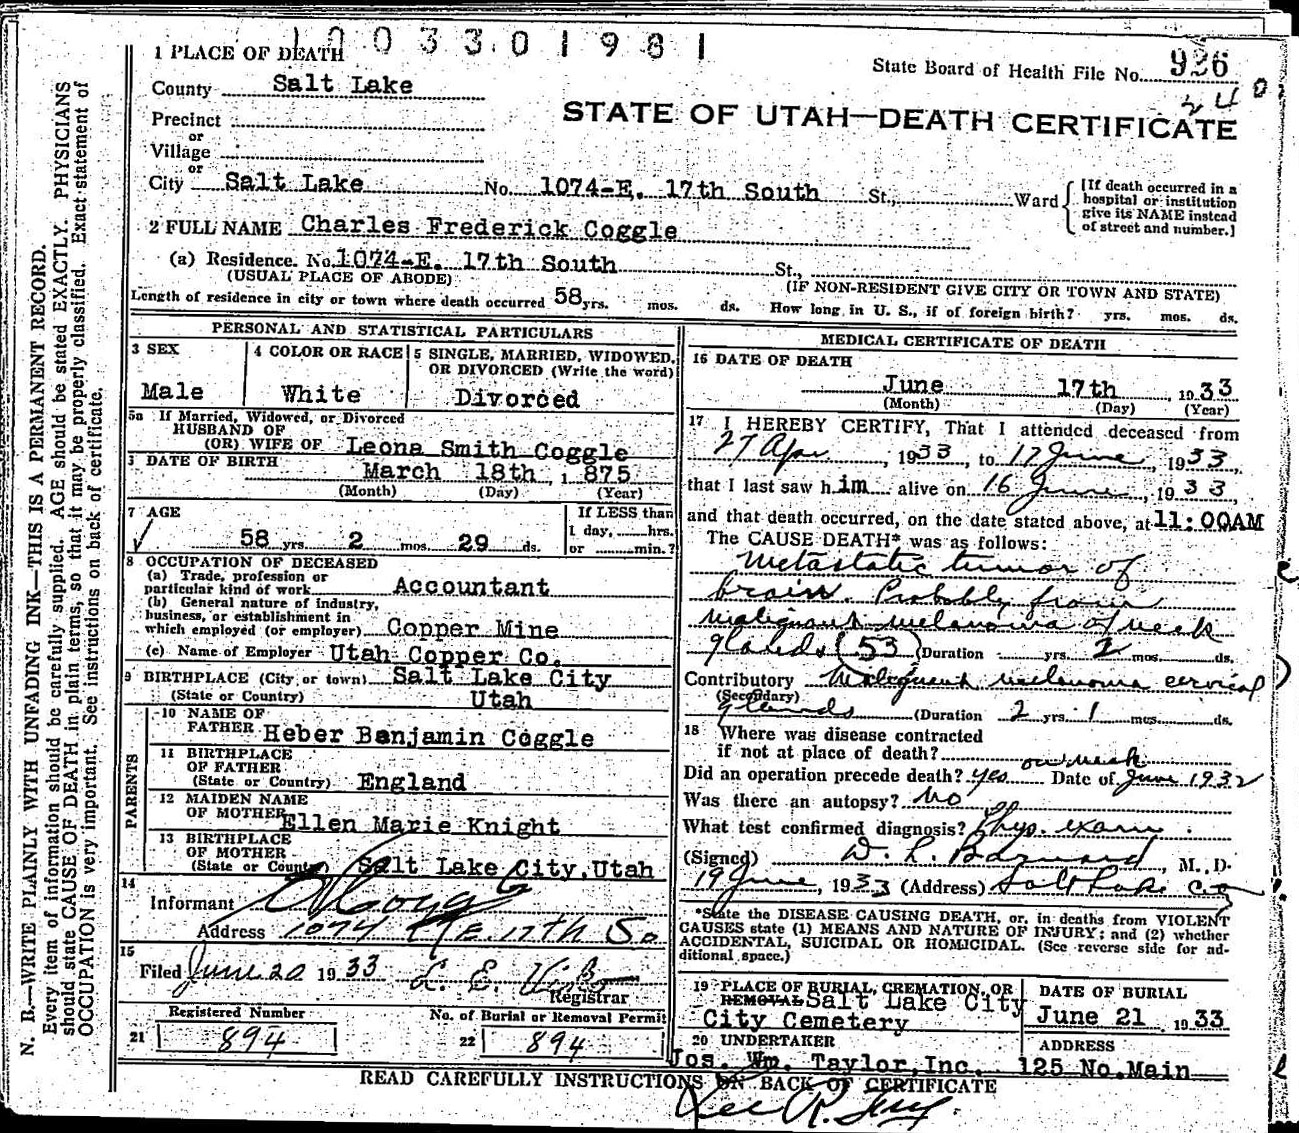 1003301981
1 PLACE OF DEATH
State Board of Health File No. 926
240
County Salt Lake
STATE OF UTAH—DEATH CERTIFICATE
Precinct
or
Village
or
City Salt Lake No. 1074-E. 17th South St., Ward
[If death occurred in a hospital or institution give its NAME instead of street and number.]
2 FULL NAME Charles Frederick Coggle
(a) Residence. No. 1074-E. 17th South St.,
(USUAL PLACE OF ABODE) (IF NON-RESIDENT GIVE CITY OR TOWN AND STATE)
Length of residence in city or town where death occurred 58 yrs. mos. ds. How long in U. S., if of foreign birth? yrs. mos. ds.
PERSONAL AND STATISTICAL PARTICULARS
3 SEX
Male
4 COLOR OR RACE
White
5 SINGLE, MARRIED, WIDOWED,
OR DIVORCED (Write the word)
Divorced
5a If Married, Widowed, or Divorced
HUSBAND OF
(OR) WIFE OF Leona Smith Coggle
DATE OF BIRTH
March 18th, 1875
(Month) (Day) (Year)
7 AGE
58 yrs. 2 mos. 29 ds.
If LESS than
1 day, hrs.
or min.?
8 OCCUPATION OF DECEASED
(a) Trade, profession or
particular kind of work Accountant
(b) General nature of industry,
business, or establishment in
which employed (or employer) Copper Mine
(c) Name of Employer Utah Copper Co.
9 BIRTHPLACE (City or town) Salt Lake City
(State or Country) Utah
PARENTS
10 NAME OF
FATHER Heber Benjamin Coggle
11 BIRTHPLACE
OF FATHER
(State or Country) England
12 MAIDEN NAME
OF MOTHER Ellen Marie Knight
13 BIRTHPLACE
OF MOTHER
(State or Country) Salt Lake City, Utah
14
Informant
Address 1074 E. 17th So
15
Filed June 20 1933
Registrar
Registered Number
21 894
No. of Burial or Removal Permit
22 894
MEDICAL CERTIFICATE OF DEATH
16 DATE OF DEATH
June 17th, 1933
(Month) (Day) (Year)
17 I HEREBY CERTIFY, That I attended deceased from
27 Apr, 1933, to 17 June, 1933,
that I last saw him alive on 16 June, 1933,
and that death occurred, on the date stated above, at 11:00AM
The CAUSE DEATH* was as follows:
Metastatic tumor of
brain. Probably from
malignant melanoma of neck
glands (53) (Duration yrs. 2 mos. ds.
Contributory Malignant melanoma cervical
(Secondary)
glands (Duration 2 yrs. 1 mos. ds.
18 Where was disease contracted
if not at place of death?
on neck
Did an operation precede death? yes Date of June 1932
Was there an autopsy? No
What test confirmed diagnosis? Phys. exam.
(Signed) W. L. Barnard, M. D.
19 June, 1933 (Address) Salt Lake City
*State the DISEASE CAUSING DEATH, or, in deaths from VIOLENT
CAUSES state (1) MEANS AND NATURE OF INJURY; and (2) whether
ACCIDENTAL, SUICIDAL OR HOMICIDAL. (See reverse side for ad-
ditional space.)
19 PLACE OF BURIAL, CREMATION, OR
REMOVAL Salt Lake City
City Cemetery
DATE OF BURIAL
June 21, 1933
20 UNDERTAKER
Jos. Wm. Taylor, Inc.
ADDRESS
125 No. Main
READ CAREFULLY INSTRUCTIONS ON BACK OF CERTIFICATE
N. B.—WRITE PLAINLY WITH UNFADING INK—THIS IS A PERMANENT RECORD.
Every item of information should be carefully supplied. AGE should be stated EXACTLY. PHYSICIANS
should state CAUSE OF DEATH in plain terms, so that it may be properly classified. Exact statement of
OCCUPATION is very important. See instructions on back of certificate.